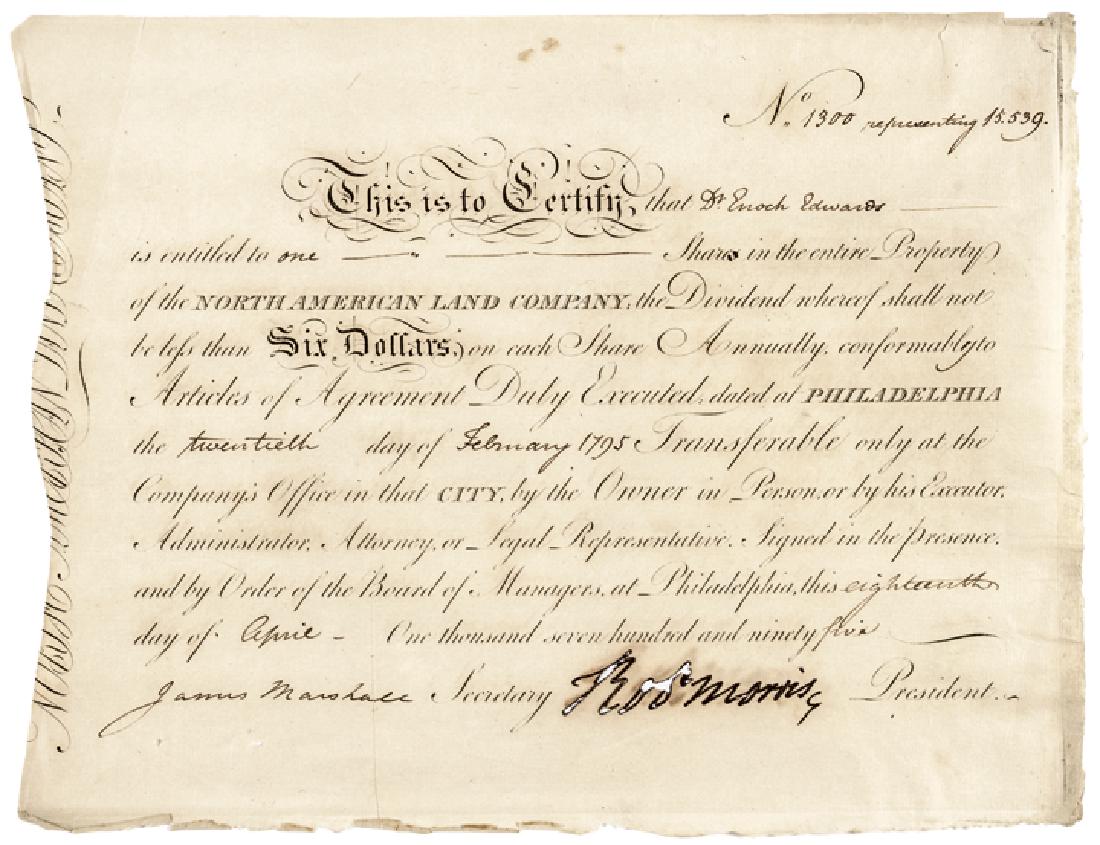 No. 1300 representing 15.539.
This is to Certify, that Dr Enoch Edwards
is entitled to one Share in the entire Property
of the NORTH AMERICAN LAND COMPANY, the Dividend whereof shall not
be less than Six Dollars, on each Share Annually, conformably to
Articles of Agreement Duly Executed, dated at PHILADELPHIA
the twentieth day of February 1795 Transferable only at the
Company's Office in that CITY, by the Owner in Person, or by his Executor,
Administrator, Attorney, or Legal Representative. Signed in the presence,
and by Order of the Board of Managers, at Philadelphia, this eighteenth
day of April - One thousand seven hundred and ninety five
James Marshall Secretary Robt Morris President.